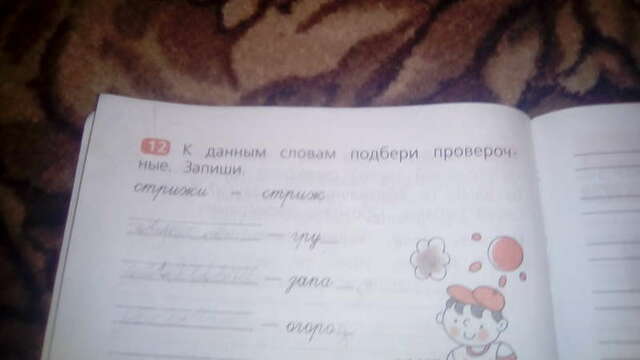 12 К данным словам подбери провероч-
ные. Запиши.
стрижи – стриж
– гру
– запа
– огоро